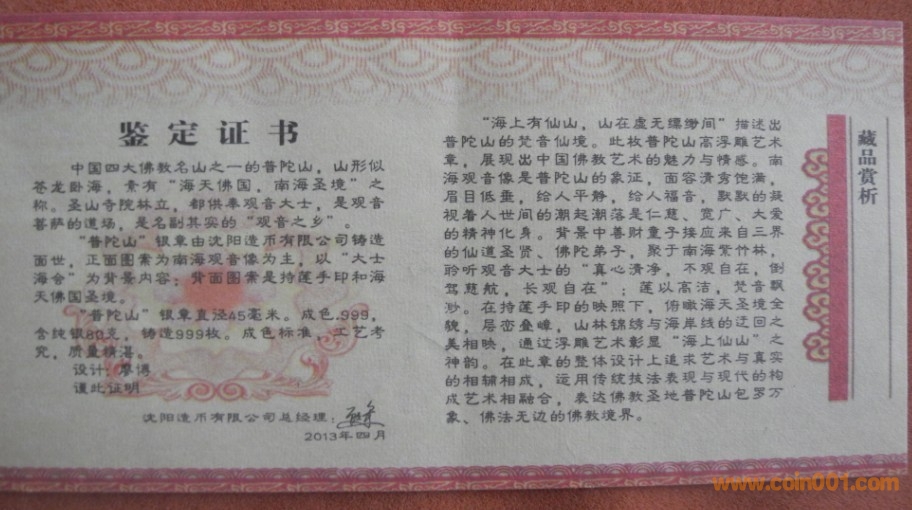 鉴定证书
中国四大佛教名山之一的普陀山，山形似
苍龙卧海，素有“海天佛国，南海圣境”之
称。圣山寺院林立，都供奉观音大士，是观音
菩萨的道场，是名副其实的“观音之乡”。
“普陀山”银章由沈阳造币有限公司铸造
面世，正面图案为南海观音像为主，以“大士
海会”为背景内容；背面图案是持莲手印和海
天佛国圣境。
“普陀山”银章直径45毫米。成色.999，
含纯银80克，铸造999枚。成色标准，工艺考
究，质量精湛。
设计：廖博
谨此证明
沈阳造币有限公司总经理：
2013年四月
藏品赏析
“海上有仙山，山在虚无缥缈间”描述出
普陀山的梵音仙境。此枚普陀山高浮雕艺术
章，展现出中国佛教艺术的魅力与情感。南
海观音像是普陀山的象征，面容清秀饱满，
眉目低垂，给人平静，给人福音，默默的凝
视着人世间的潮起潮落是仁慈、宽广、大爱
的精神化身。背景中善财童子接应来自三界
的仙道圣贤、佛陀弟子，聚于南海紫竹林，
聆听观音大士的“真心清净，不观自在，倒
驾慈航，长观自在”；莲以高洁，梵音飘
渺。在持莲手印的映照下，俯瞰海天圣境全
貌，层峦叠嶂，山林锦绣与海岸线的迂回之
美相映，通过浮雕艺术彰显“海上仙山”之
神韵。在此章的整体设计上追求艺术与真实
的相辅相成，运用传统技法表现与现代的构
成艺术相融合，表达佛教圣地普陀山包罗万
象、佛法无边的佛教境界。
www.coin001.com